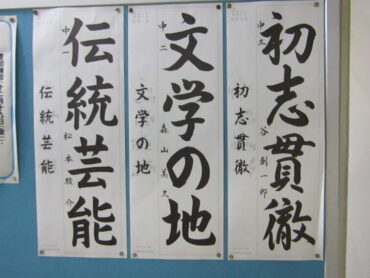 初志貫徹
中三
谷創一郎
初志貫徹
文学の地
中二
森山美久
文学の地
伝統芸能
中一
松本駿介
伝統芸能